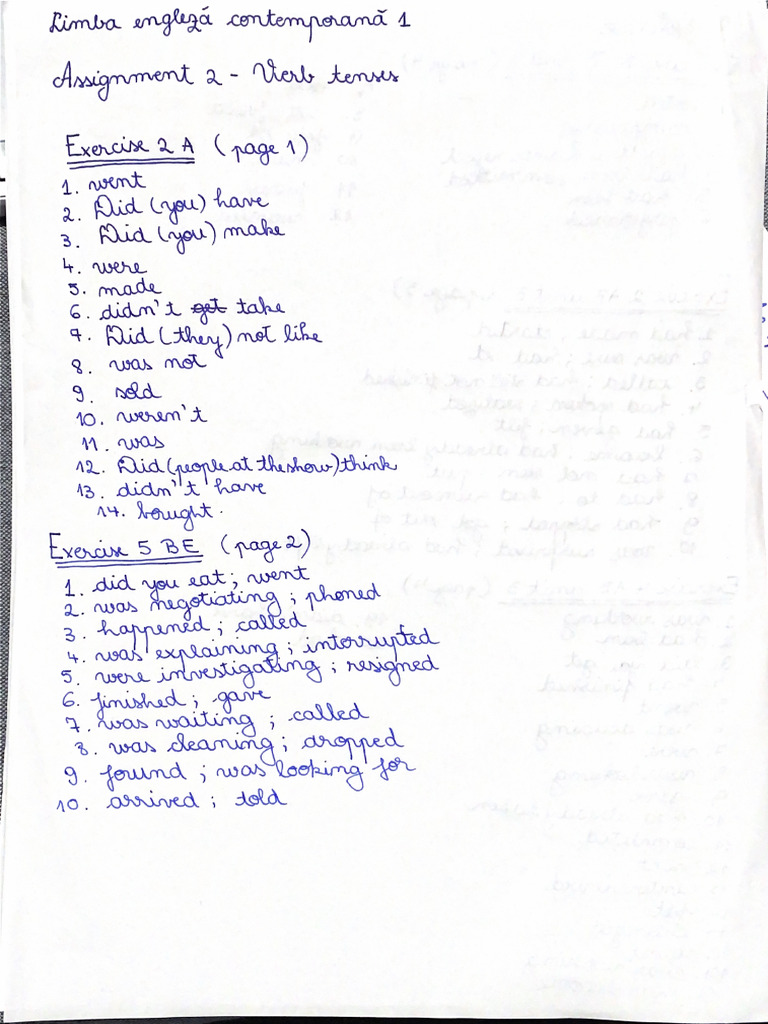 Limba engleză contemporană 1
Assignment 2 - Verb tenses
Exercise 2 A (page 1)
1. went
2. Did (you) have
3. Did (you) make
4. were
5. made
6. didn't get take
7. Did (they) not like
8. was not
9. sold
10. weren't
11. was
12. Did (people at the show) think
13. didn't have
14. bought.
Exercise 5 BE (page 2)
1. did you eat; went
2. was negotiating; phoned
3. happened; called
4. was explaining; interrupted
5. were investigating; resigned
6. finished; gave
7. was waiting; called
8. was cleaning; dropped
9. found; was looking for
10. arrived; told